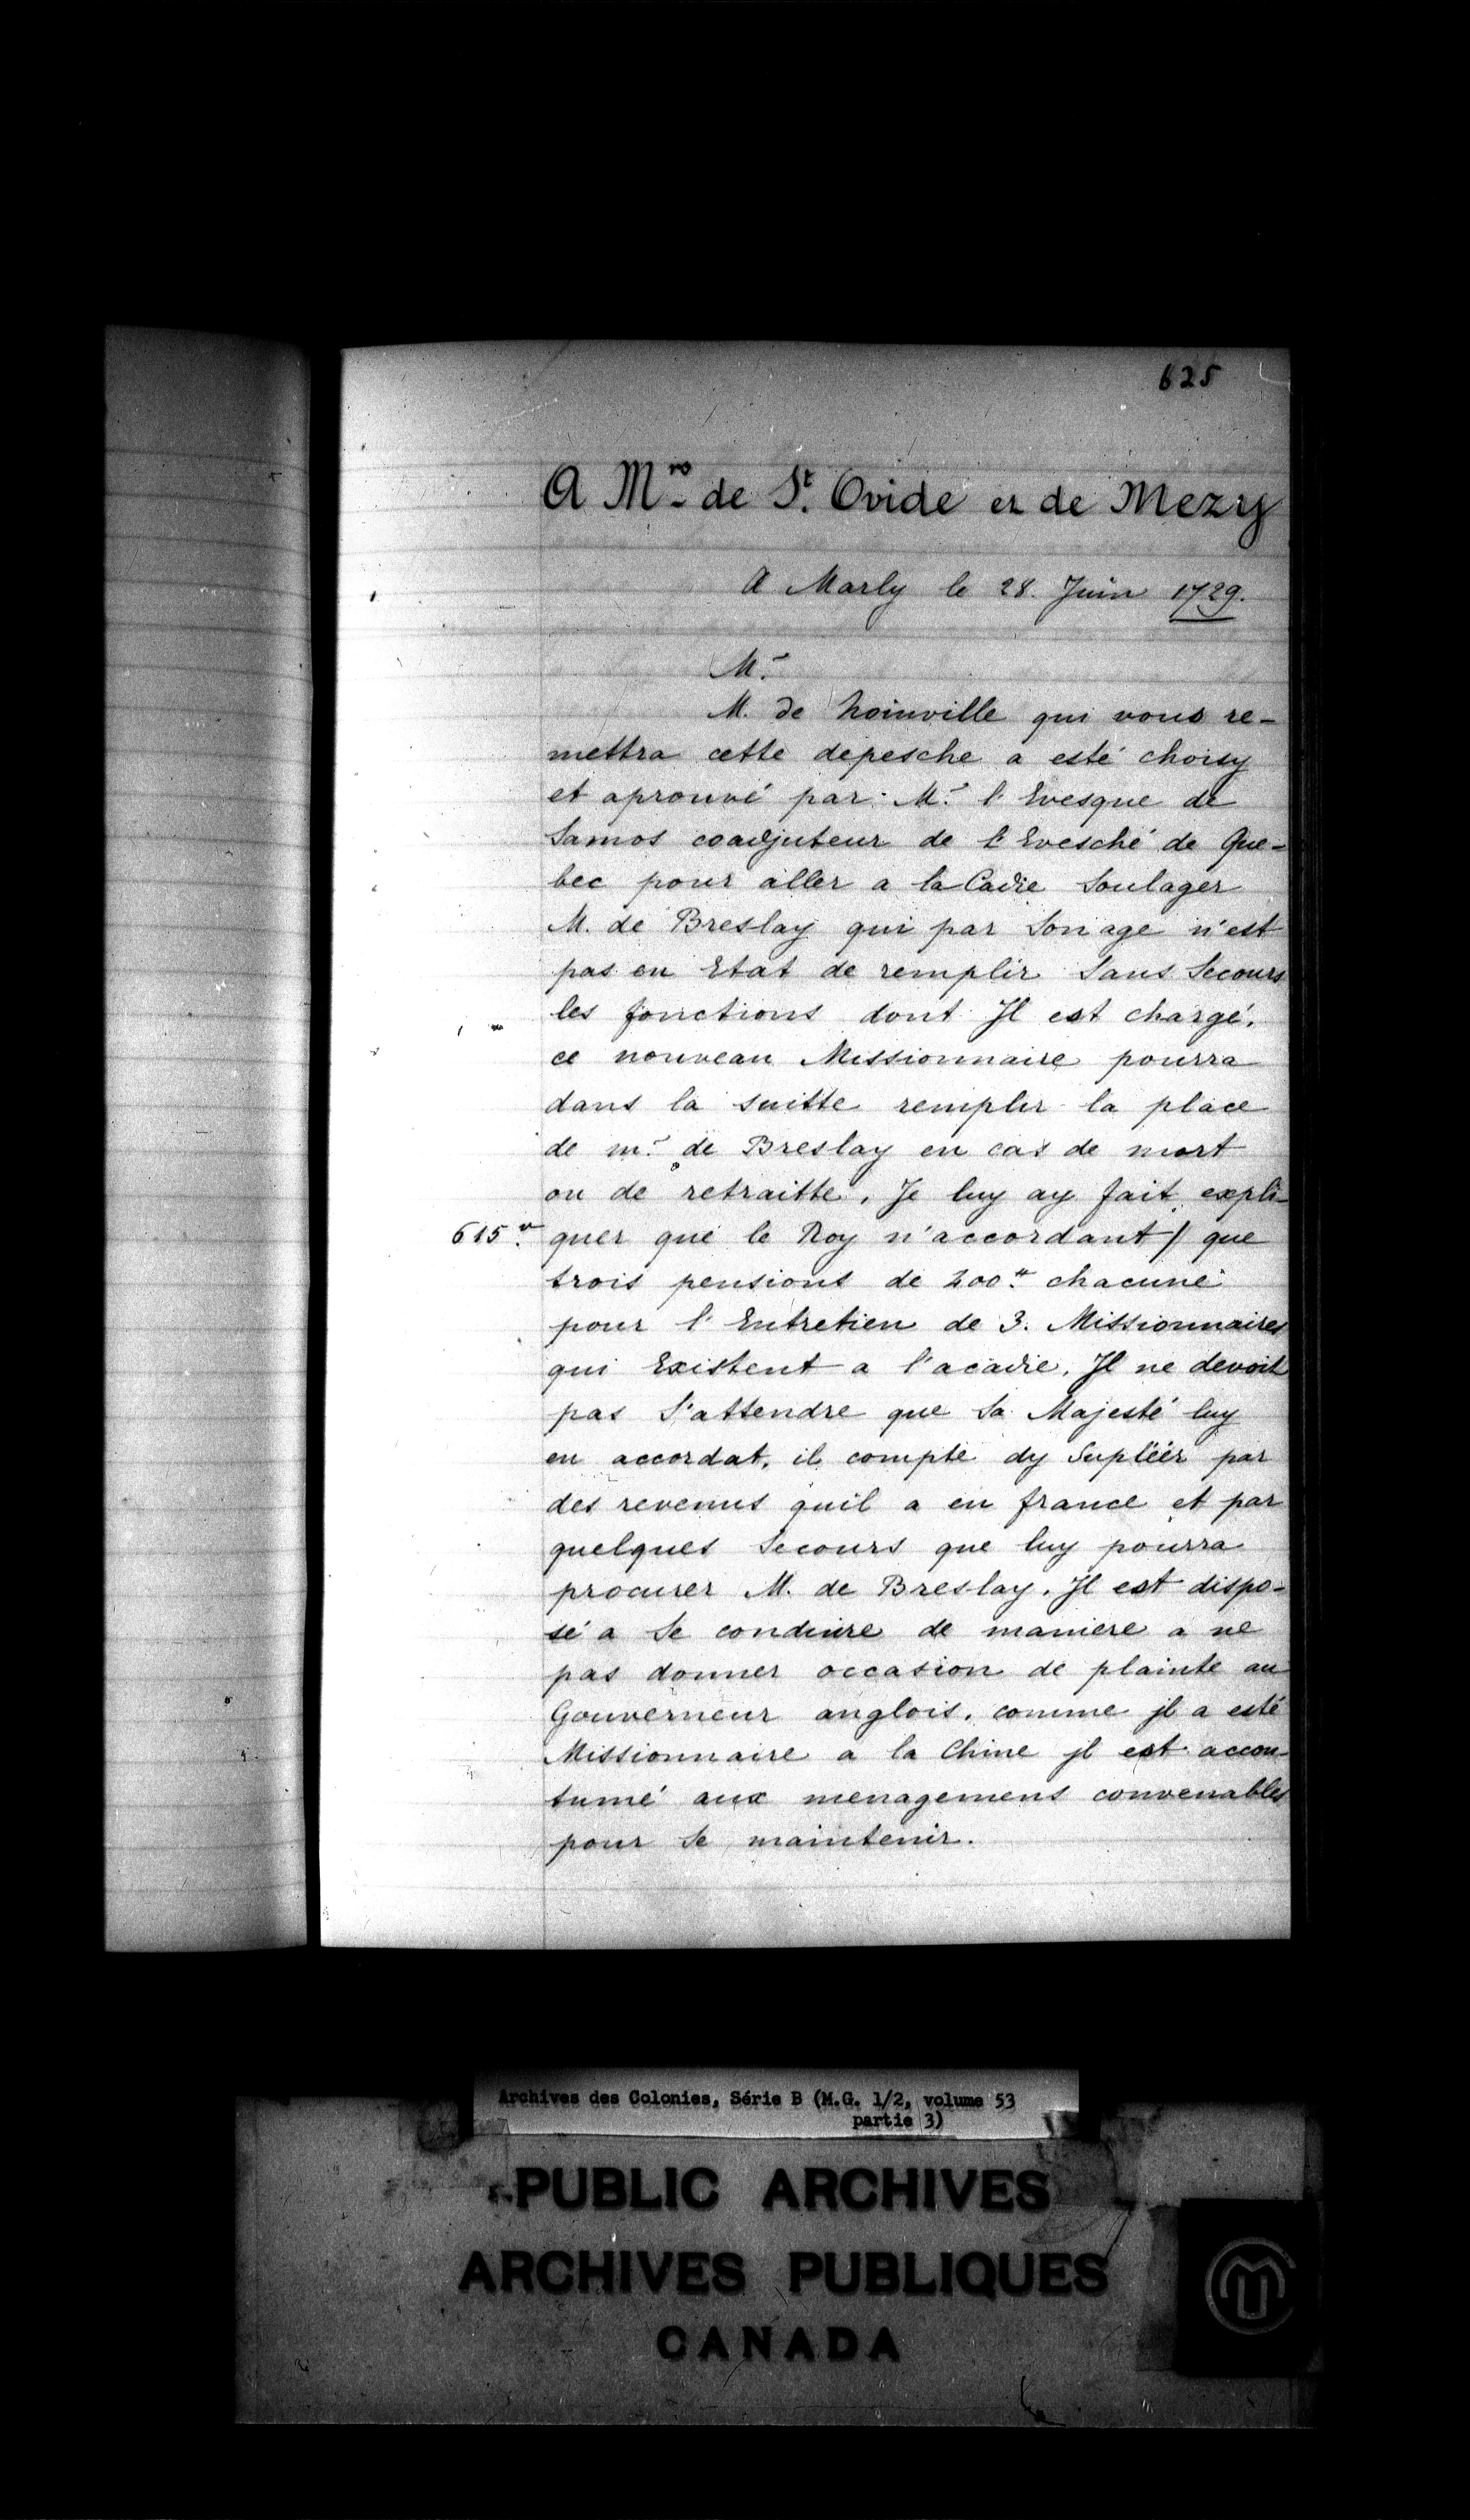 625
A Mrs de St. Ovide et de Mezy
A Marly le 28. Juin 1729.
Mr.
M. de Noinville qui vous re-
mettra cette depesche a esté choisy
et aprouvé par Mr. l'Evesque de
Samos coadjuteur de l'Evesché de Que-
bec pour aller a la Cadie Soulager
M. de Breslay qui par Son age n'est
pas en Etat de remplir Sans Secours
les fonctions dont Il est chargé.
ce nouveau Missionnaire pourra
dans la suitte remplir la place
de mr. de Breslay en cas de mort
ou de retraitte. Je luy ay fait expli-
615 v. quer que le Roy n'accordant // que
trois pensions de 200ₜₜ chacune
pour l'Entretien de 3. Missionnaires
qui Existent a l'acadie, Il ne devoit
pas S'attendre que Sa Majesté luy
en accordat, il compte dy Supléér par
des revenus quil a en france et par
quelques Secours que luy pourra
procurer M. de Breslay. Il est dispo-
sé a Se conduire de maniere a ne
pas donner occasion de plainte au
Gouverneur anglois, comme jl a esté
Missionnaire a la Chine jl est accou-
tumé aux menagemens convenables
pour Se maintenir.
Archives des Colonies, Série B (M.G. 1/2, volume 53
partie 3)
PUBLIC ARCHIVES
ARCHIVES PUBLIQUES
CANADA